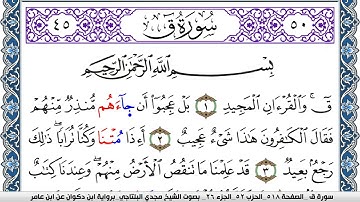 ٤٥ سُورَةُ قٓ ٥٠
بِسْمِ ٱللَّهِ ٱلرَّحْمَٰنِ ٱلرَّحِيمِ
قٓ ۚ وَٱلْقُرْءَانِ ٱلْمَجِيدِ ١ بَلْ عَجِبُوٓا۟ أَن جَآءَهُم مُّنذِرٌ مِّنْهُمْ
فَقَالَ ٱلْكَٰفِرُونَ هَٰذَا شَىْءٌ عَجِيبٌ ٢ أَءِذَا مُتْنَا وَكُنَّا تُرَابًا ۖ ذَٰلِكَ
رَجْعٌۢ بَعِيدٌ ٣ قَدْ عَلِمْنَا مَا تَنقُصُ ٱلْأَرْضُ مِنْهُمْ ۖ وَعِندَنَا كِتَٰبٌ
سورة ق ، الصفحة ٥١٨ ، الحزب ٥٢ ، الجزء ٢٦ . بصوت الشيخ مجدي البلتاجي برواية ابن ذكوان عن ابن عامر